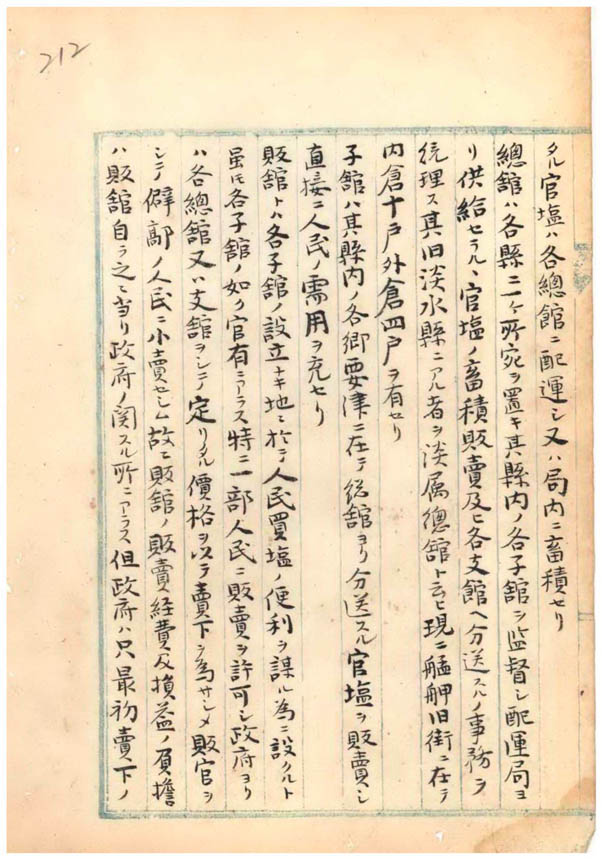 212
タル官塩ハ各總館ニ配運シ又ハ局内ニ畜積セリ
總舘ハ各縣ニ一ヶ所宛ヲ置キ其縣内ノ各子舘ヲ監督シ配運局ヨ
リ供給セラルヽ官塩ノ畜積販賣及ヒ各支館ヘ分送スルノ事務ヲ
統理ス其旧淡水縣ニアル者ヲ淡属總舘ト云ヒ現ニ艋舺旧街ニ在テ
内倉十戸外倉四戸ヲ有セリ
子舘ハ其縣内ノ各郷要津ニ在テ総舘ヨリ分送スル官塩ヲ販賣シ
直接ニ人民ノ需用ヲ充セリ
販舘トハ各子舘ノ設立ナキ地ニ於テ人民買塩ノ便利ヲ謀ル為ニ設クルト
虽氏各子舘ノ如ク官有ニアラス特ニ一部人民ニ販賣ヲ許可シ政府ヨリ
ハ各總舘又ハ支舘ヲシテ定リタル價格ヲ以テ賣下ヲ為サシメ販官ヲ
シテ僻鄙ノ人民ニ小賣セシム故ニ販舘ノ販賣経費及損益ノ負擔
ハ販舘自ラ之ニ当リ政府ノ関スル所ニアラス但政府ハ只最初賣下ノ